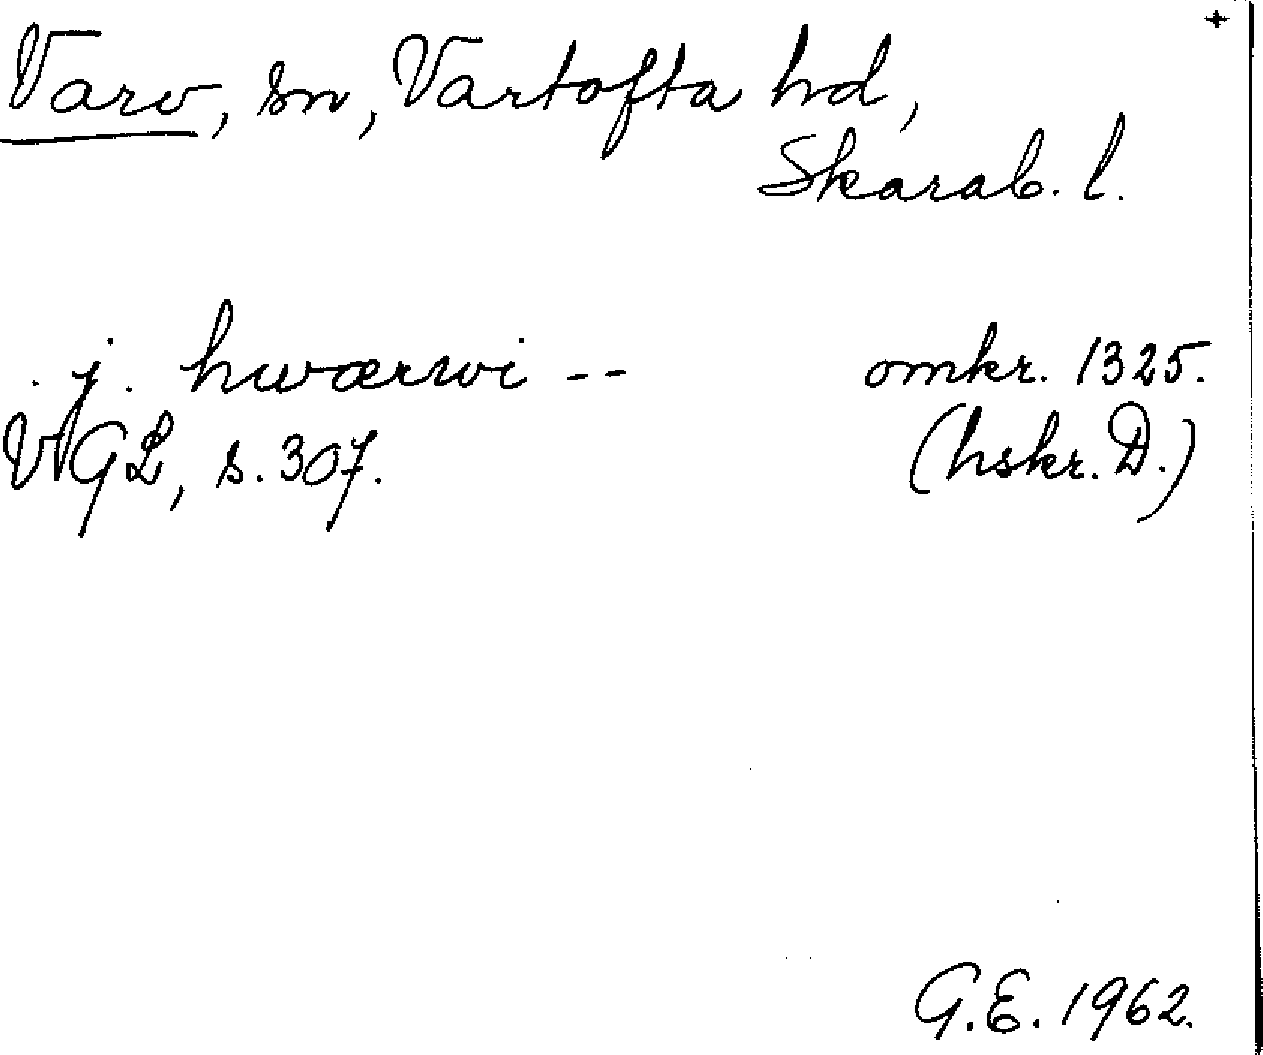 +
Varv, sn, Vartofta hd,
Skarab. l.
. j. hwærwi -- omkr. 1325.
VGL, s. 307. (hskr. D.)
G.E. 1962.